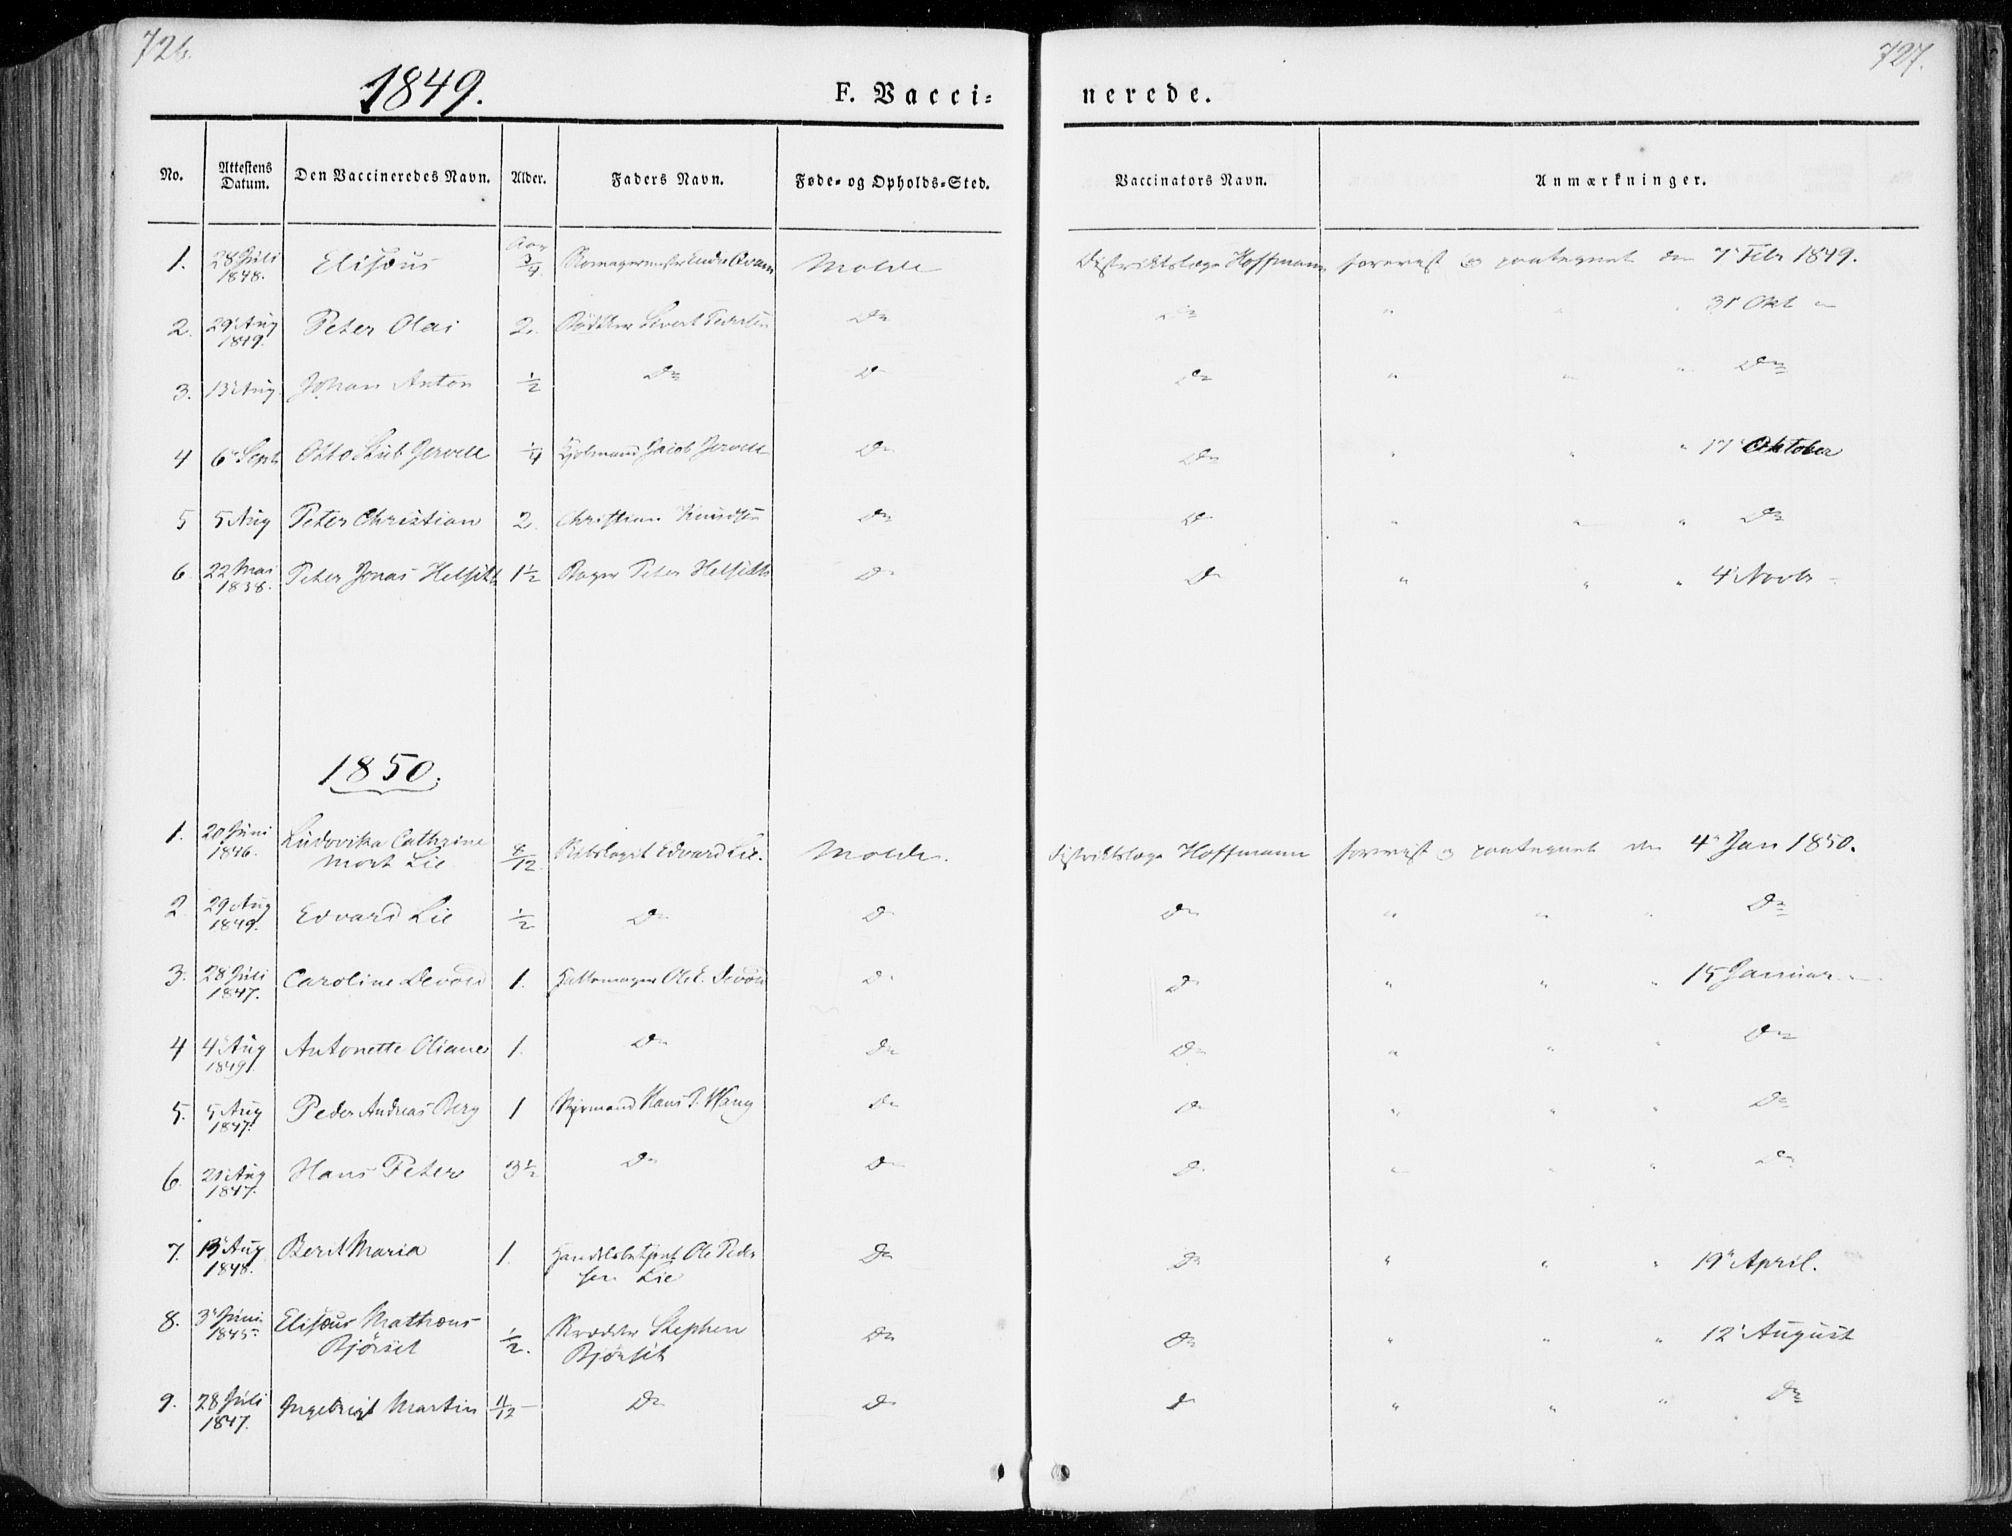 726.
727.
1849.
F. Vacci-
nerede.
No.
Attestens Datum.
Den Vaccineredes Navn.
Alder.
Faders Navn.
Føde- og Opholds-Sted.
Vaccinators Navn.
Anmærkninger.
1. 28 Juli 1848. Elisæus Aar 3/4 Molde Distriktslæge Hoffmann forevist og paategnet den 7 Feb 1849.
2. 29 Aug 1849. Peter Olai 2. Bødker Sivert Pedersen Do Do " " " 31 Okt
3. 13 Aug. Johan Anton 1/2 Do Do Do " " " Do
4 6 Sept Otto Stub Jervell 1/4 Jacob Jervell Do Do " " " 17 Oktober
5 5 Aug Peter Christian 2. Christian Knudsen Do Do " " " Do
6. 22 Mai 1838. Peter Jonas Helseth 1 1/2 Bager Peter Helseth Do Do " " " 4 Novbr
1850.
1. 20 Juni 1846. Ludovika Cathrine Lie /12 Edvard Lie. Molde. Distriktslæge Hoffmann forevist og paategnet den 4 Jan 1850.
2. 29 Aug 1849. Edvard Lie 1/2 Do Do Do " " " Do
3. 28 Juli 1847. Caroline Devold 1. Hattemager Ole E. Devold Do Do " " " 15 Januar
4 4 Aug 1849. Antonette Oliane 1. Do Do Do " " " Do
5. 5 Aug 1847. Peder Andreas Berg 1 Hans P. Do Do " " " Do
6. 21 Aug 1847. Hans Peter 3 1/2 Do Do Do " " " Do
7. 13 Aug 1848. Berit Maria 1. Ole Peder
sen Lie Do Do " " " 19 April.
8. 3 Juni 1845. Elisæus Mathæus
Bjørset 1/2. Skrædder Stephen
Bjørset Do Do " " " 12 August
9. 28 Juli 1847. Ingebrigt Martin 11/12 Do Do Do " " " Do